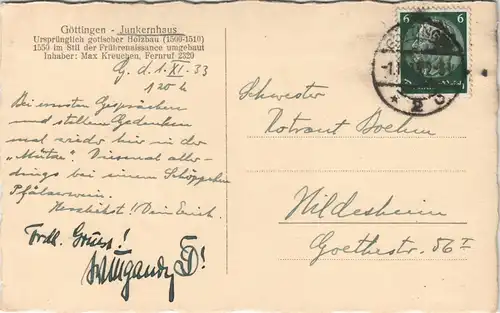 Göttingen - Junkernhaus
Ursprünglich gotischer Holzbau (1500-1510)
1550 im Stil der Frührenaissance umgebaut
Inhaber: Max Kreuchen, Fernruf 2320
G. d. 1. XI. 33
Bei ernsten Gesprächen
und stillem Gedenken
mal wieder hier in der
„Mütze“. Diesmal aller-
dings bei einem Schöppchen
Pfälzerwein.
Herzlichst! Dein Erich.
Frdl. Gruss!
6 6
2
Schwester
Rotraut Boehm
Hildesheim
Goethestr. 56 I